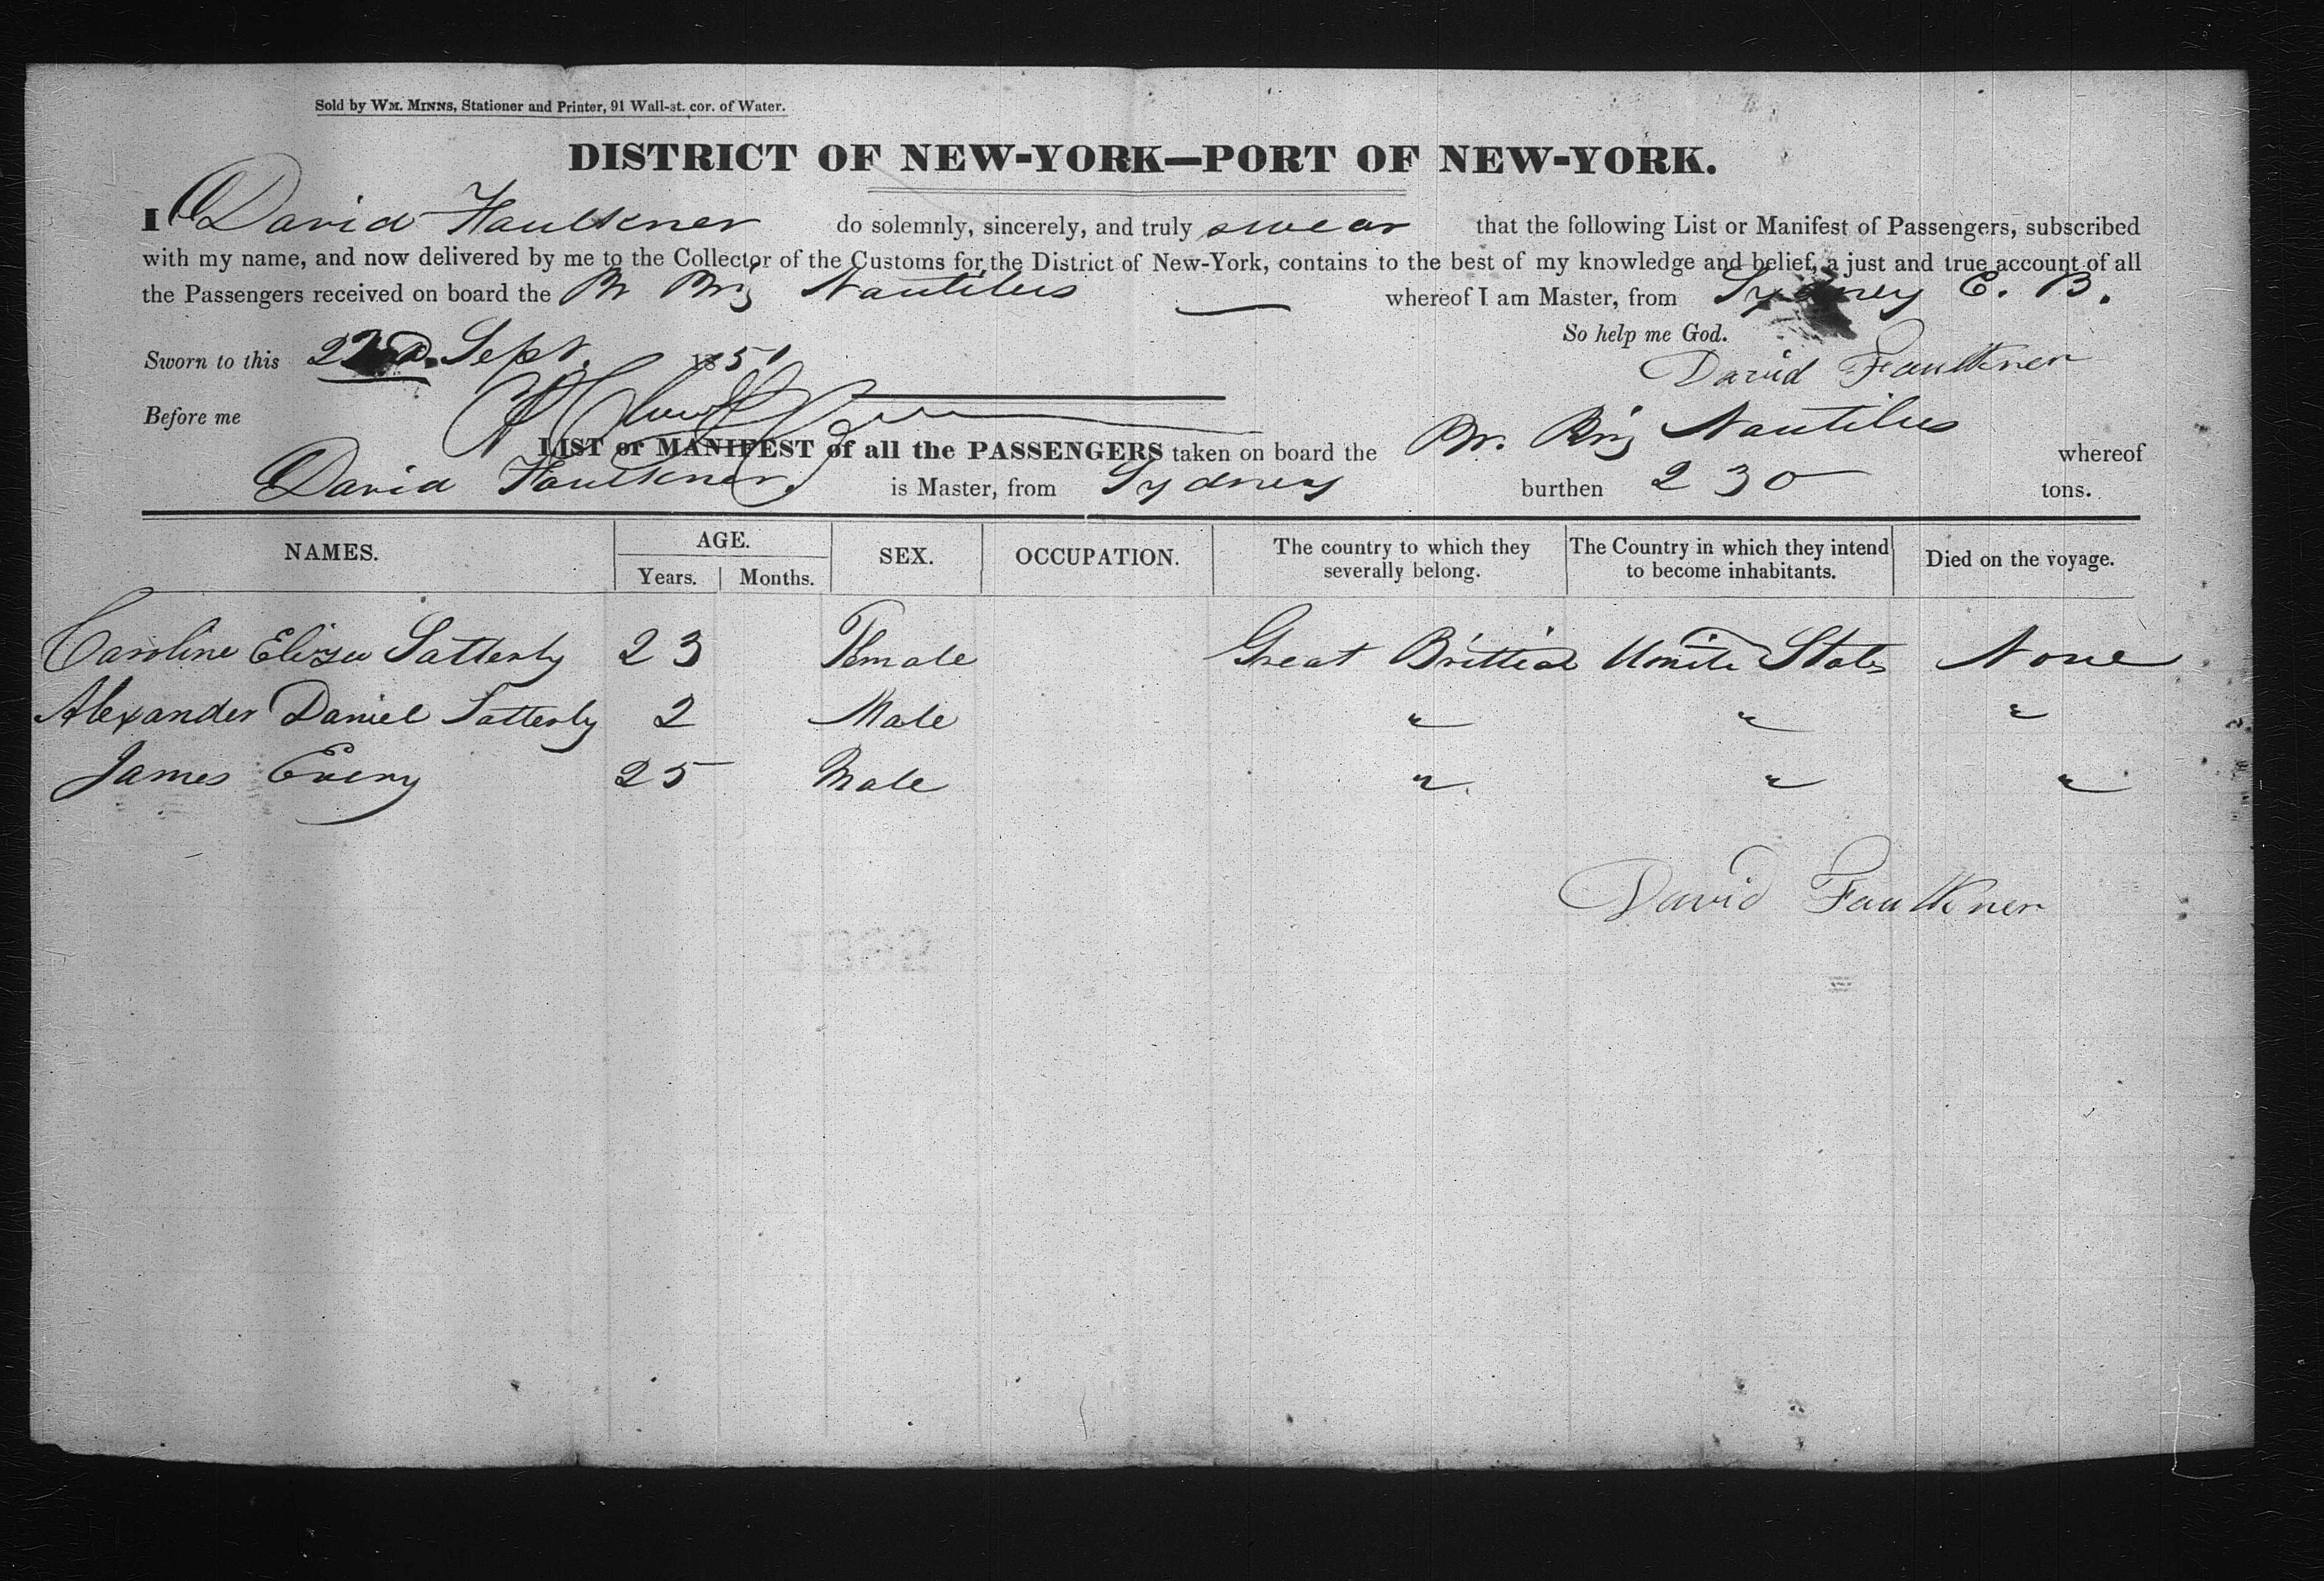 Sold by WM. MINNS, Stationer and Printer, 91 Wall-st. cor. of Water.
DISTRICT OF NEW-YORK—PORT OF NEW-YORK.
I David Faulkner do solemnly, sincerely, and truly swear that the following List or Manifest of Passengers, subscribed
with my name, and now delivered by me to the Collector of the Customs for the District of New-York, contains to the best of my knowledge and belief, a just and true account of all
the Passengers received on board the Br Brig Nautilus whereof I am Master, from Sydney C. B.
So help me God.
Sworn to this 22nd. Sept. 1851 David Faulkner
Before me
LIST or MANIFEST of all the PASSENGERS taken on board the Br. Brig Nautilus whereof
David Faulkner. is Master, from Sydney burthen 230 tons.
NAMES. AGE. Years. Months. SEX. OCCUPATION. The country to which they severally belong. The Country in which they intend to become inhabitants. Died on the voyage.
Caroline Eliza Satterly 23 Female Great Brittian Unite States None
Alexander Daniel Satterly 2 Male " " "
James Every 25 Male " " "
David Faulkner